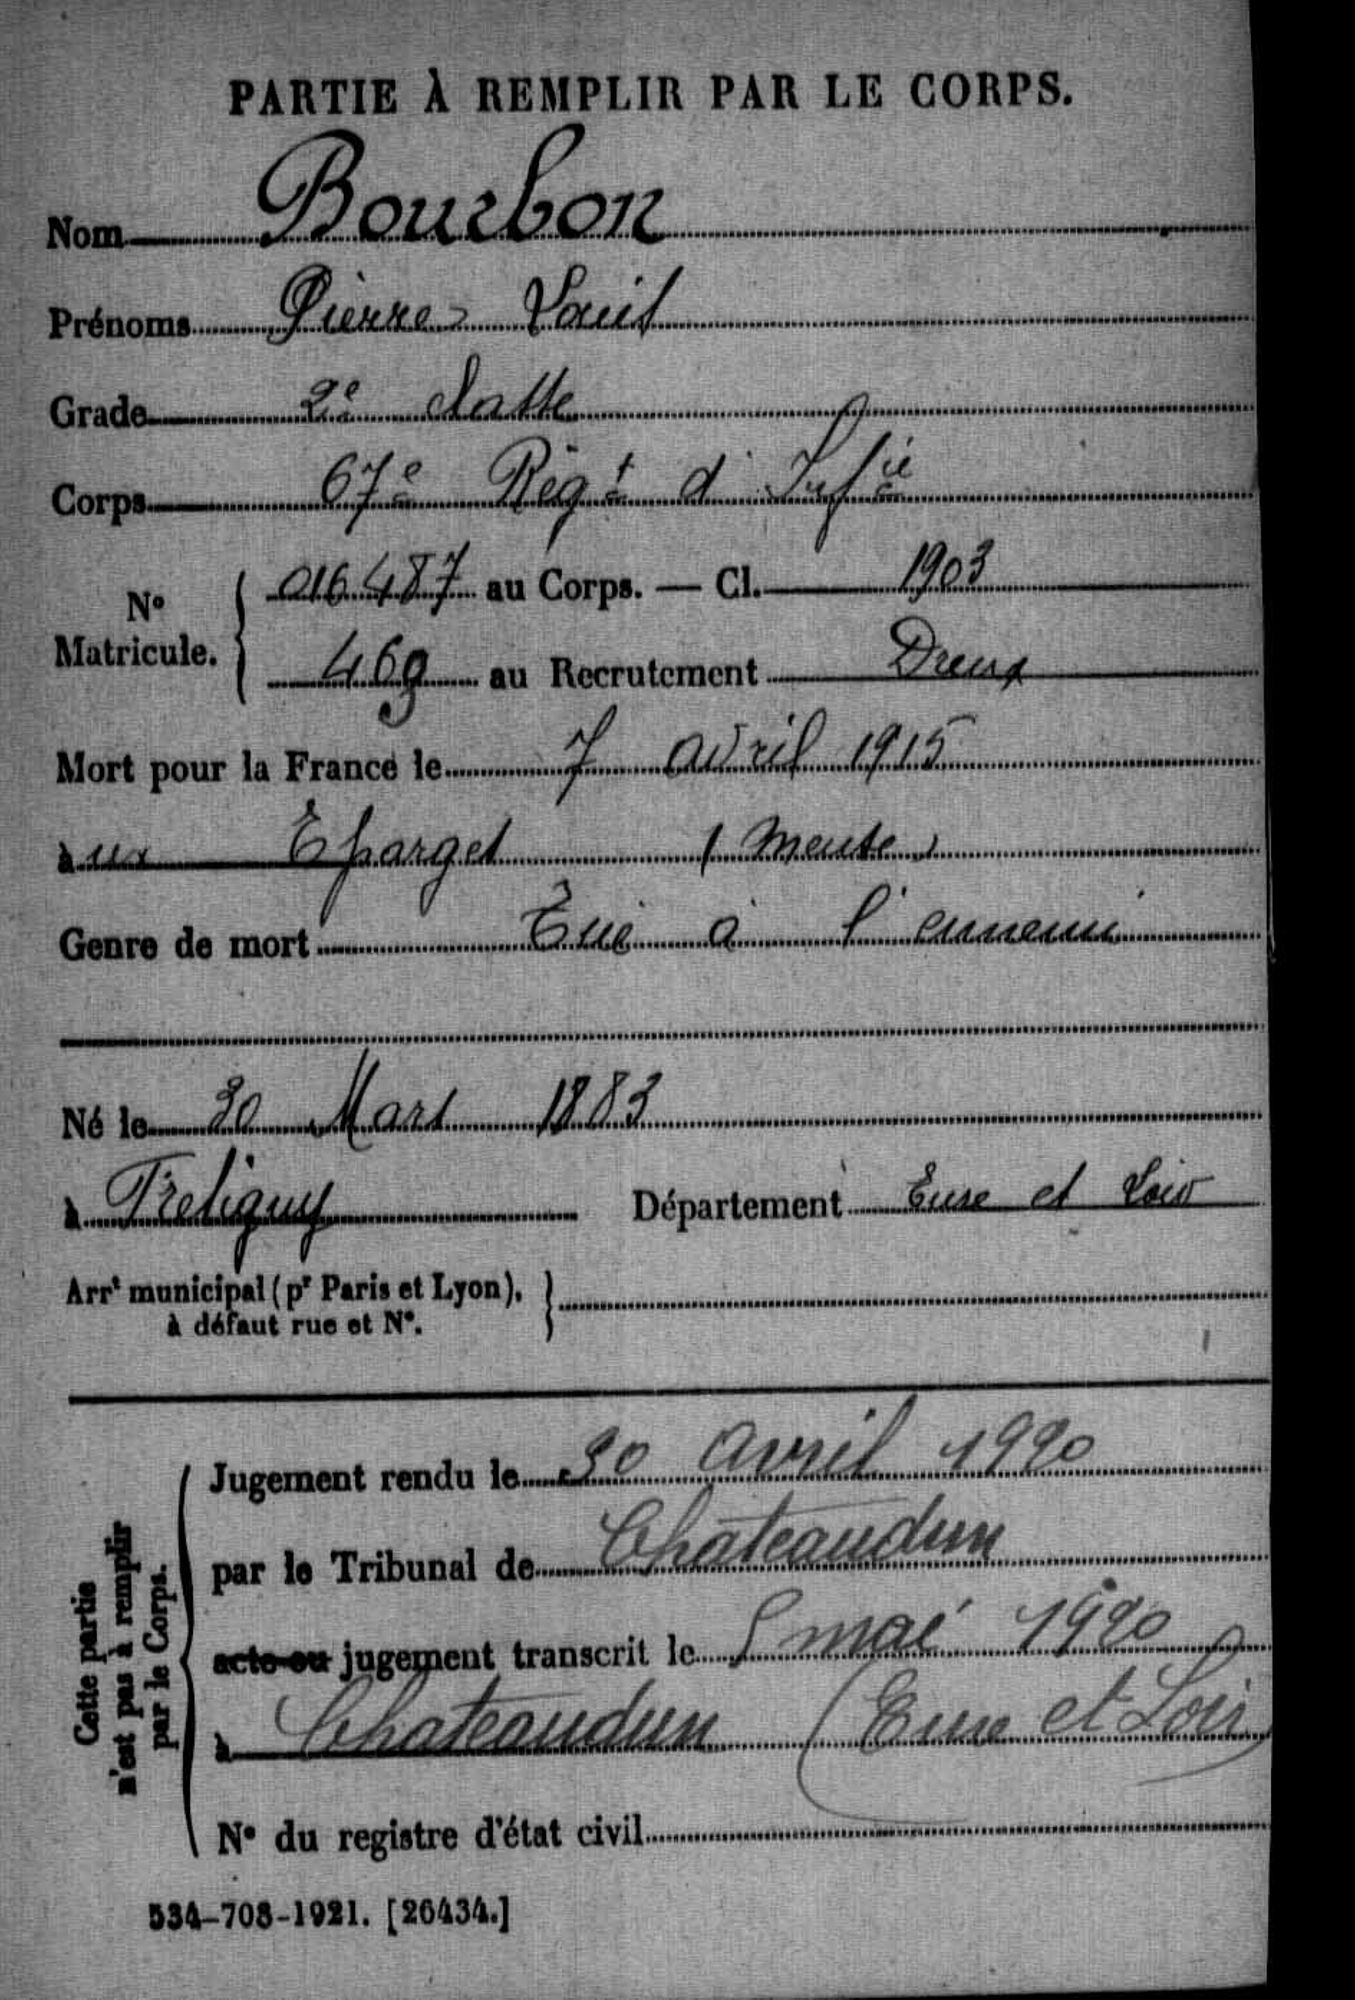 PARTIE À REMPLIR PAR LE CORPS.
Nom Bourbon
Prénoms Pierre Louis
Grade 2e classe
Corps 67e Régt d'Infie
N° Matricule. 016487 au Corps. — Cl. 1903
469 au Recrutement Dreux
Mort pour la France le 7 avril 1915
à ux Eparges (Meuse)
Genre de mort Tué à l'ennemi
Né le 30 Mars 1883
à Frétigny Département Eure et Loir
Arrt municipal (pr Paris et Lyon),
à défaut rue et N°.
Cette partie
n'est pas à remplir
par le Corps.
Jugement rendu le 30 avril 1920
par le Tribunal de Châteaudun
acte ou jugement transcrit le mai 1920
à Chateaudun (Eure et Loir)
N° du registre d'état civil
534-708-1921. [26434.]